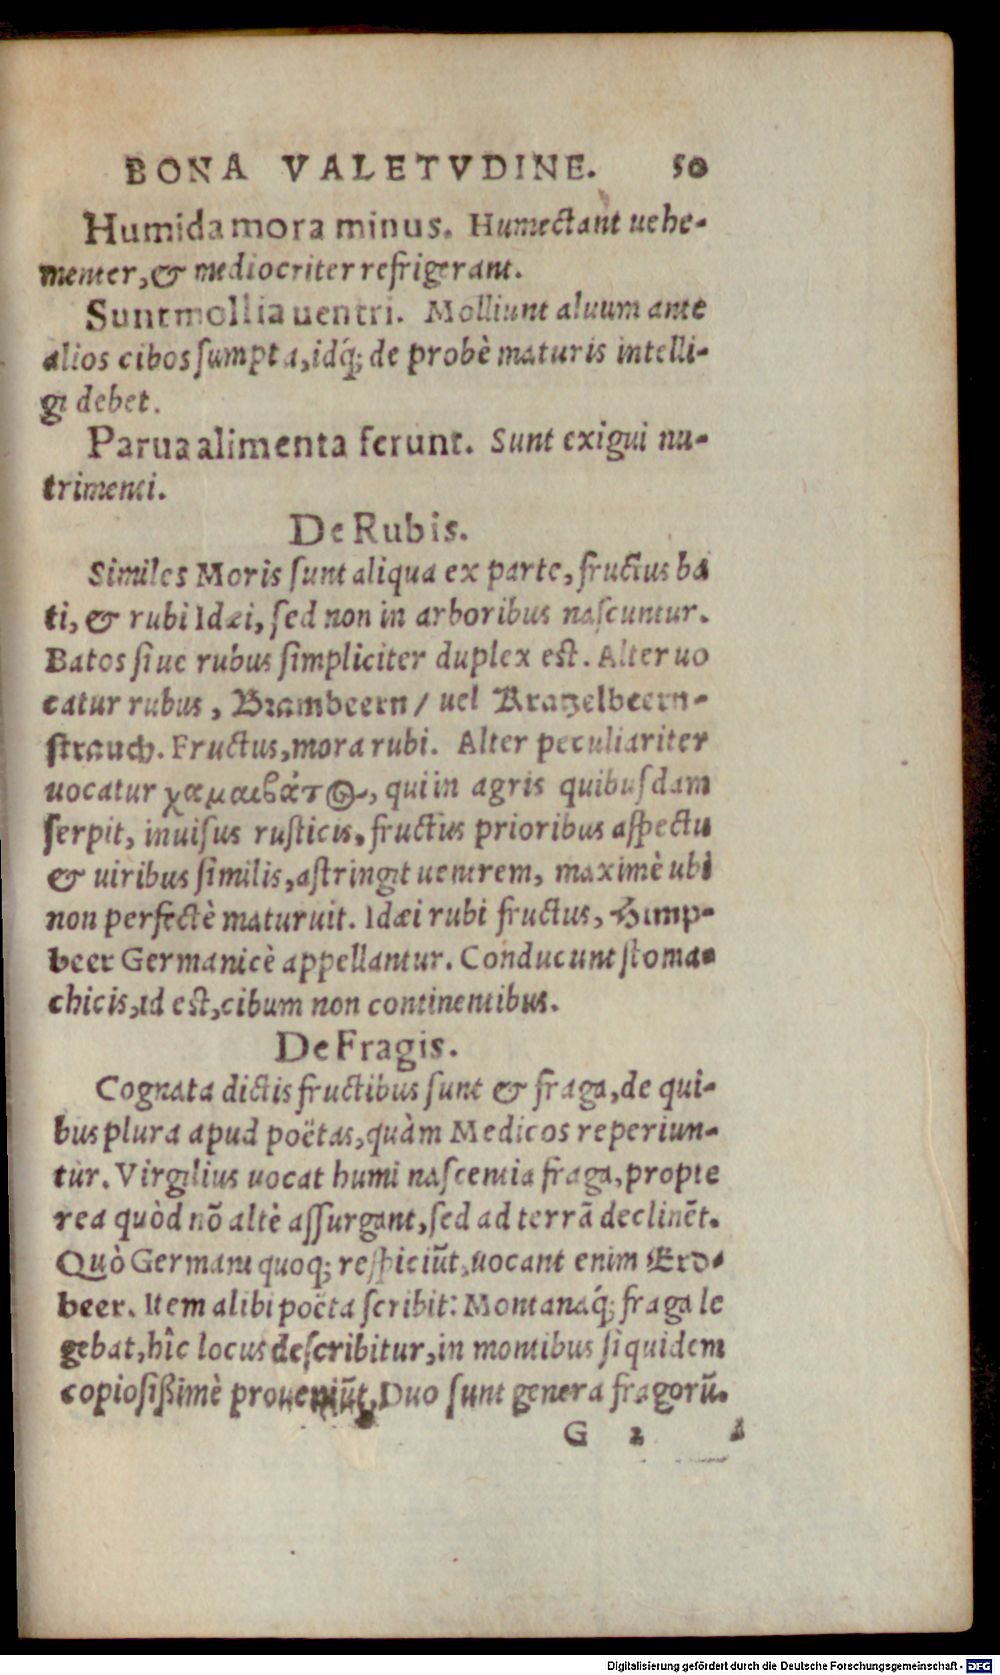 BONA VALETVDINE. 50
Humida mora minus. Humectant uehe-
menter, & mediocriter refrigerant.
Sunt mollia uentri. Molliunt aluum ante
alios cibos ſumpta, idq́; de probè maturis intelli-
gi debet.
Parua alimenta ferunt. Sunt exigui nu-
trimenti.
De Rubis.
Similes Moris ſunt aliqua ex parte, fructus ba
ti, & rubi Idæi, ſed non in arboribus naſcuntur.
Batos ſiue rubus ſimpliciter duplex est. Alter uo
catur rubus, Brambeern / uel Kratzelbeern-
strauch. Fructus, mora rubi. Alter peculiariter
uocatur χαμαιβάτος, qui in agris quibuſdam
ſerpit, inuiſus ruſticis, fructus prioribus aſpectu
& uiribus ſimilis, aſtringit uentrem, maximè ubi
non perfectè maturuit. Idæi rubi fructus, Himp-
beer Germanicè appellantur. Conducunt ſtoma-
chicis, id est, cibum non continentibus.
De Fragis.
Cognata dictis fructibus ſunt & fraga, de qui-
bus plura apud poëtas, quàm Medicos reperiun-
tur. Virgilius uocat humi naſcentia fraga, propte
rea quòd nõ altè aſſurgant, ſed ad terrã declinẽt.
Quò Germani quoq; reſpiciũt, uocant enim Erd-
beer. Item alibi poëta ſcribit: Montanaq́; fraga le
gebat, hîc locus deſcribitur, in montibus ſiquidem
copioſißimè proueniũt, Duo ſunt genera fragorũ.
G 2
Digitalisierung gefördert durch die Deutsche Forschungsgemeinschaft - DFG